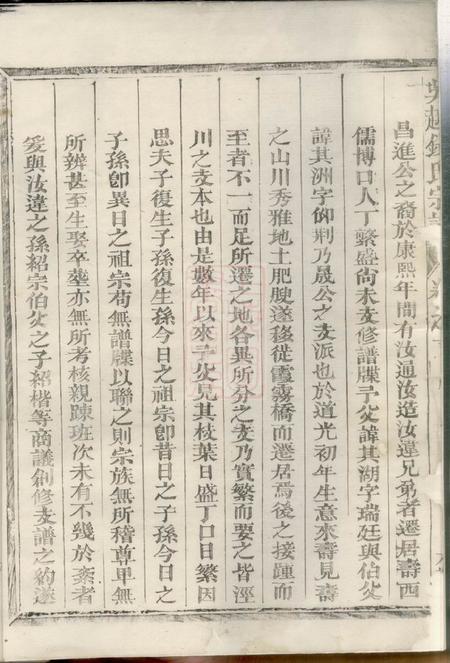 吳越錢氏宗譜
昌進公之裔於康熙年間有汝通汝造汝違兄弟者遷居壽西
儒博口人丁繁盛尙未支修譜牒予父諱其湖字瑞廷與伯父
諱其洲字仰荆乃晟公之支派也於道光初年生意來壽見壽
之山川秀雅地土肥腴遂移徙霞霧橋而遷居焉後之接踵而
至者不一而足所遷之地各異所分之支乃實繁而要之皆涇
川之支本也由是數年以來予父見其枝葉日盛丁口日繁因
思夫子復生子孫復生孫今日之祖宗卽昔日之子孫今日之
子孫卽異日之祖宗苟無譜牒以聯之則宗族無所稽尊卑無
所辨甚至生娶卒塟亦無所考核親踈班次未有不幾於紊者
爰與汝違之孫紹宗伯父之子紹楷等商議創修支譜之約遂